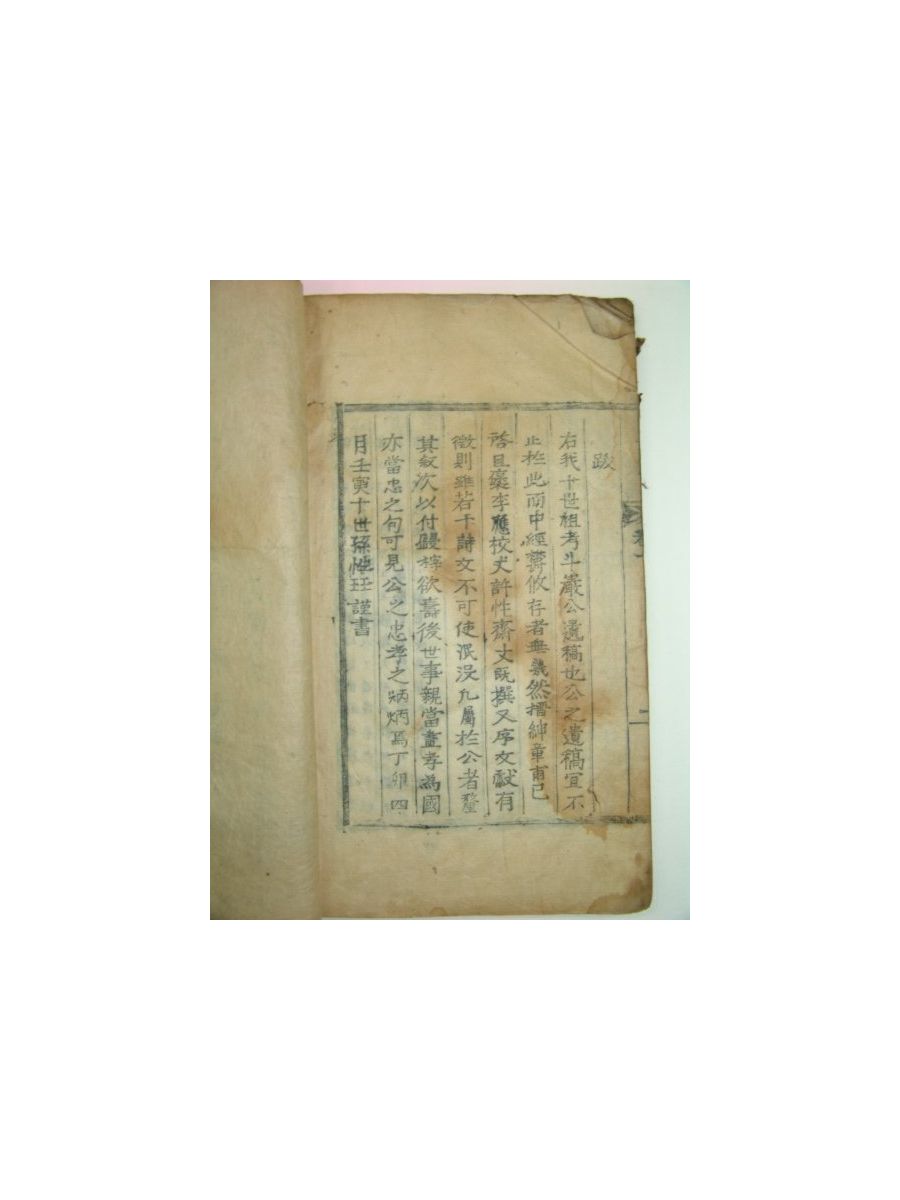 跋
右我十世祖考斗巖公遺稿也公之遺稿宜不
止於此而中經欝攸存者無幾然搢紳章甫已
啓且褒李應校丈許性齋丈旣撰又序文獻有
徵則雖若干詩文不可使泯沒凡屬於公者釐
其敘次以付鋟梓欲壽後世事親當盡孝爲國
亦當忠之句可見公之忠孝之炳炳焉丁卯四
月壬寅十世孫 謹書
卷一
二